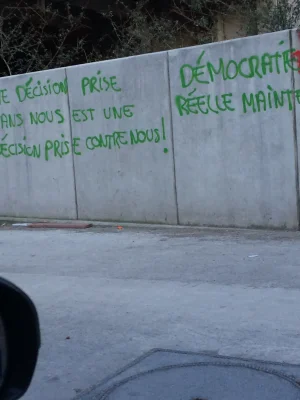 TE DÉCISION PRISE
ANS NOUS EST UNE
DÉCISION PRISE CONTRE NOUS!
DÉMOCRATIE
RÉELLE MAINTE